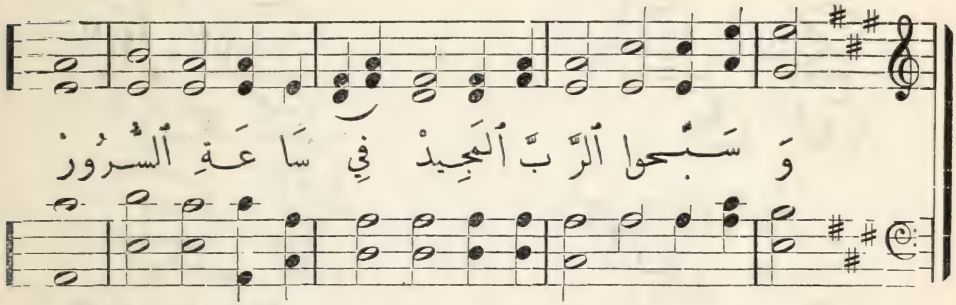 وَ سَبِّحوا ٱلرَّ بَّ ٱلمَجِيدْ فِي سَا عَةِ ٱلسُّرُورْ